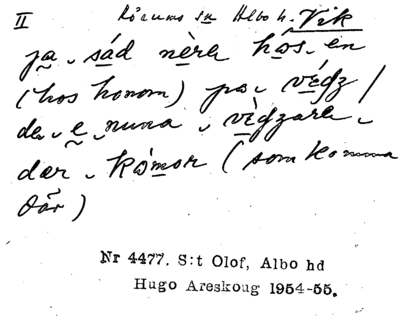 II Rörums sn Albo h. Vik
ja, sád nèra hós en
(hos honom) pa, végz /
de, e, nuna, vègzara,
dar, kómor (som komma
där)
Nr 4477. S:t Olof, Albo hd
Hugo Areskoug 1954-55.